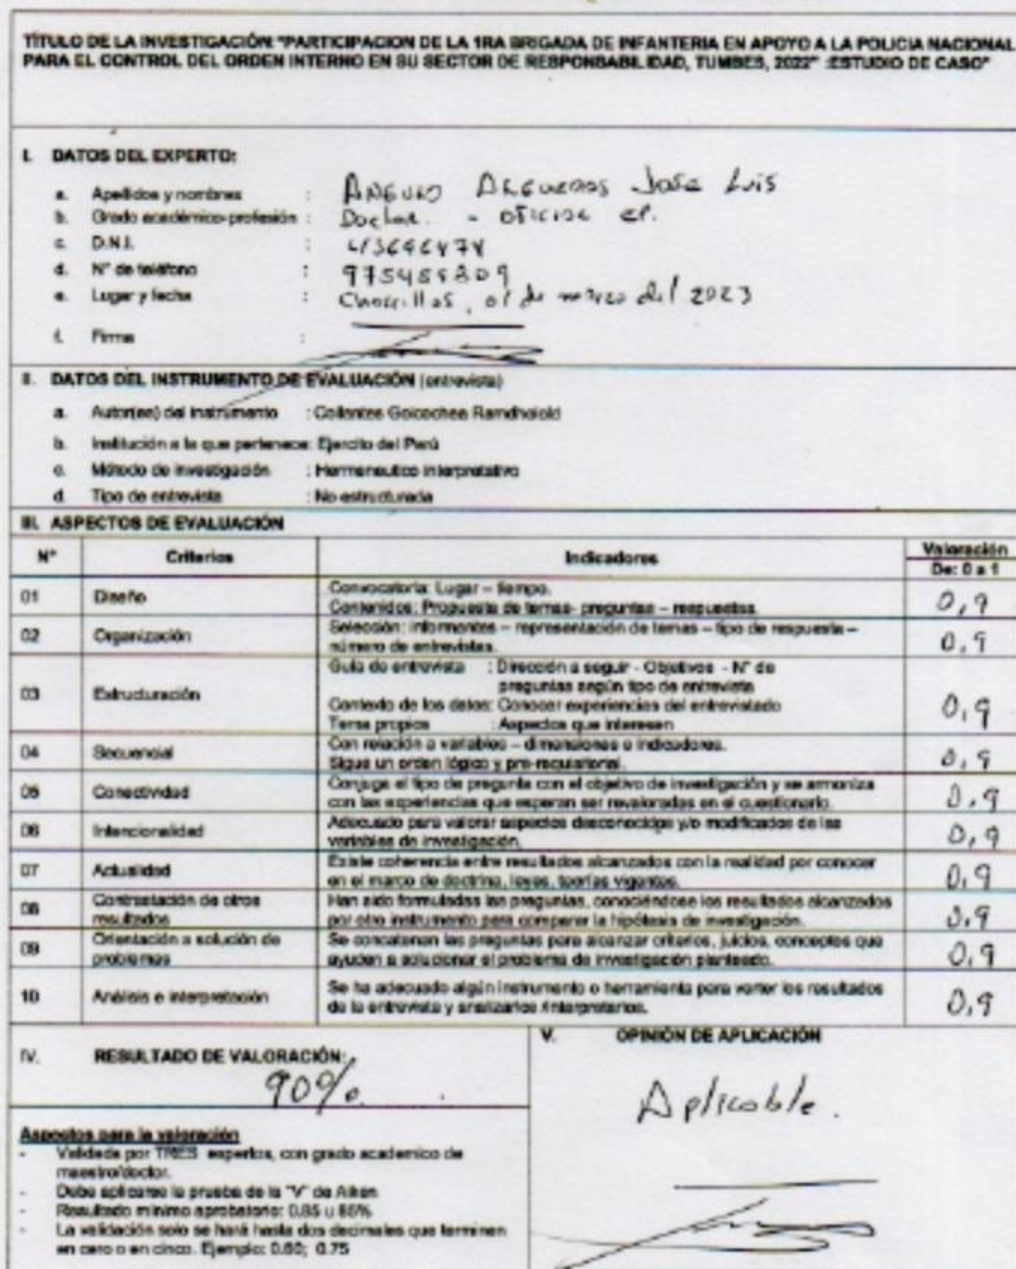 TÍTULO DE LA INVESTIGACIÓN: "PARTICIPACION DE LA 1RA BRIGADA DE INFANTERIA EN APOYO A LA POLICIA NACIONAL
PARA EL CONTROL DEL ORDEN INTERNO EN SU SECTOR DE RESPONSABILIDAD, TUMBES, 2022" :ESTUDIO DE CASO"
I. DATOS DEL EXPERTO:
a. Apellidos y nombres : ANGULO Jose Luis
b. Grado académico-profesión : Doctor - oficial EP.
c. D.N.I. :
d. N° de teléfono :
e. Lugar y fecha : Chorrillos, 01 de marzo del 2023
f. Firma :
II. DATOS DEL INSTRUMENTO DE EVALUACIÓN (entrevista)
a. Autor(es) del instrumento : Collantes Goicochea
b. Institución a la que pertenece: Ejercito del Perú
c. Método de investigación : Hermeneutico interpretativo
d. Tipo de entrevista : No estructurada
III. ASPECTOS DE EVALUACIÓN
N° Criterios Indicadores Valoración
De: 0 a 1
01 Diseño Convocatoria: Lugar – tiempo.
Contenidos: Propuesta de temas- preguntas – respuestas. 0,9
02 Organización Selección: informantes – representación de temas – tipo de respuesta –
número de entrevistas. 0,9
03 Estructuración Guía de entrevista : Dirección a seguir - Objetivos - N° de
preguntas según tipo de entrevista
Contexto de los datos: Conocer experiencias del entrevistado
Tema propios : Aspectos que interesen 0,9
04 Secuencial Con relación a variables – dimensiones e indicadores.
Sigue un orden lógico y pre-requisitional. 0,9
05 Conectividad Conjuga el tipo de pregunta con el objetivo de investigación y se armoniza
con las experiencias que esperan ser revaloradas en el cuestionario. 0,9
06 Intencionalidad Adecuado para valorar aspectos desconocidos y/o modificados de las
variables de investigación. 0,9
07 Actualidad Existe coherencia entre resultados alcanzados con la realidad por conocer
en el marco de doctrina, leyes, teorías vigentes. 0,9
08 Contrastación de otros
resultados Han sido formuladas las preguntas, conociéndose los resultados alcanzados
por otro instrumento para comparar la hipótesis de investigación. 0,9
09 Orientación a solución de
problemas Se concatenan las preguntas para alcanzar criterios, juicios, conceptos que
ayuden a solucionar el problema de investigación planteado. 0,9
10 Análisis e interpretación Se ha adecuado algún instrumento o herramienta para verter los resultados
de la entrevista y analizarlos /interpretarlos. 0,9
IV. RESULTADO DE VALORACIÓN:
90%
Aspectos para la valoración
- Validada por TRES expertos, con grado academico de
maestro/doctor.
- Debe aplicarse la prueba de la "V" de Aiken
- Resultado mínimo aprobatorio: 0.85 u 85%
- La validación solo se hará hasta dos decimales que terminen
en cero o en cinco. Ejemplo: 0.80; 0.75
V. OPINIÓN DE APLICACIÓN
Aplicable.